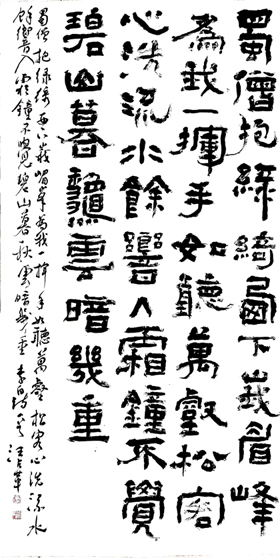 蜀僧抱綠綺西下峨眉峰
為我一揮手如聽萬壑松客
心洗流水餘響入霜鐘不覺
碧山暮龝雲暗幾重
蜀僧抱綠綺西下峨嵋峯為我一揮手如聽萬壑松客心洗流水
餘響入霜鐘不覺碧山暮秋雲暗幾重 李白詩